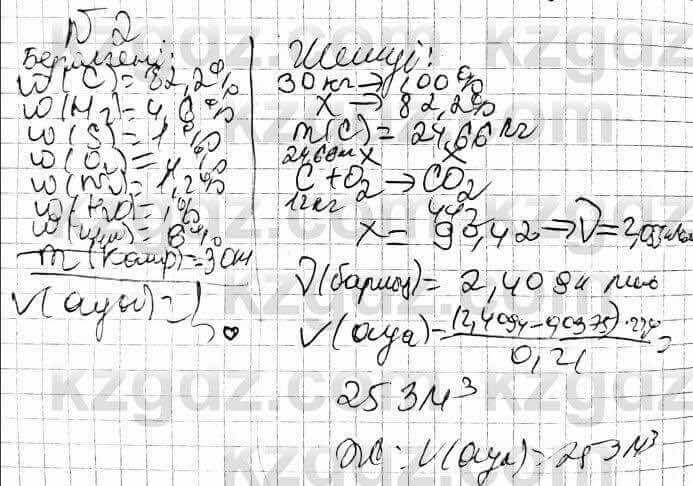 №2
Берілгені:
w(C)=82,2%
w(H2)=4,6%
w(S)=1%
w(O2)=4%
w(N2)=1,2%
w(H2O)=1%
w(күл)=6%
m(көмір)=30кг
V(ауа)-?
Шешуі:
30кг→100%
x→82,2%
m(C)=24,66кг
24,66кг x
C+O2→CO2
12кг 44
x=90,42→ν=2,055кмоль
ν(барлық)=2,4094кмоль
V(ауа)=(2,4094-0,0375)·22,4
0,21
253м³
Ж: V(ауа)=253м³
kzgdz.com